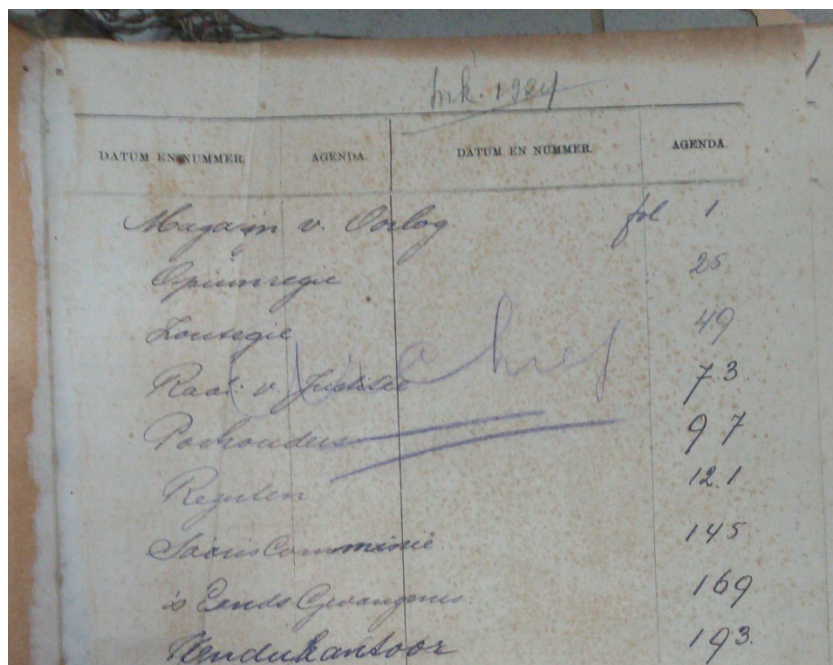 Ink. 1924
DATUM EN NUMMER. AGENDA. DATUM EN NUMMER. AGENDA.
Magazijn v. Oorlog fol 1
Opiumregie 25
Zoutregie 49
Raad v. Justitie 73
Pachouders 97
Regenten 121
Salaris Commissie 145
's Lands Gevangenis 169
Vendukantoor 193.
Archief